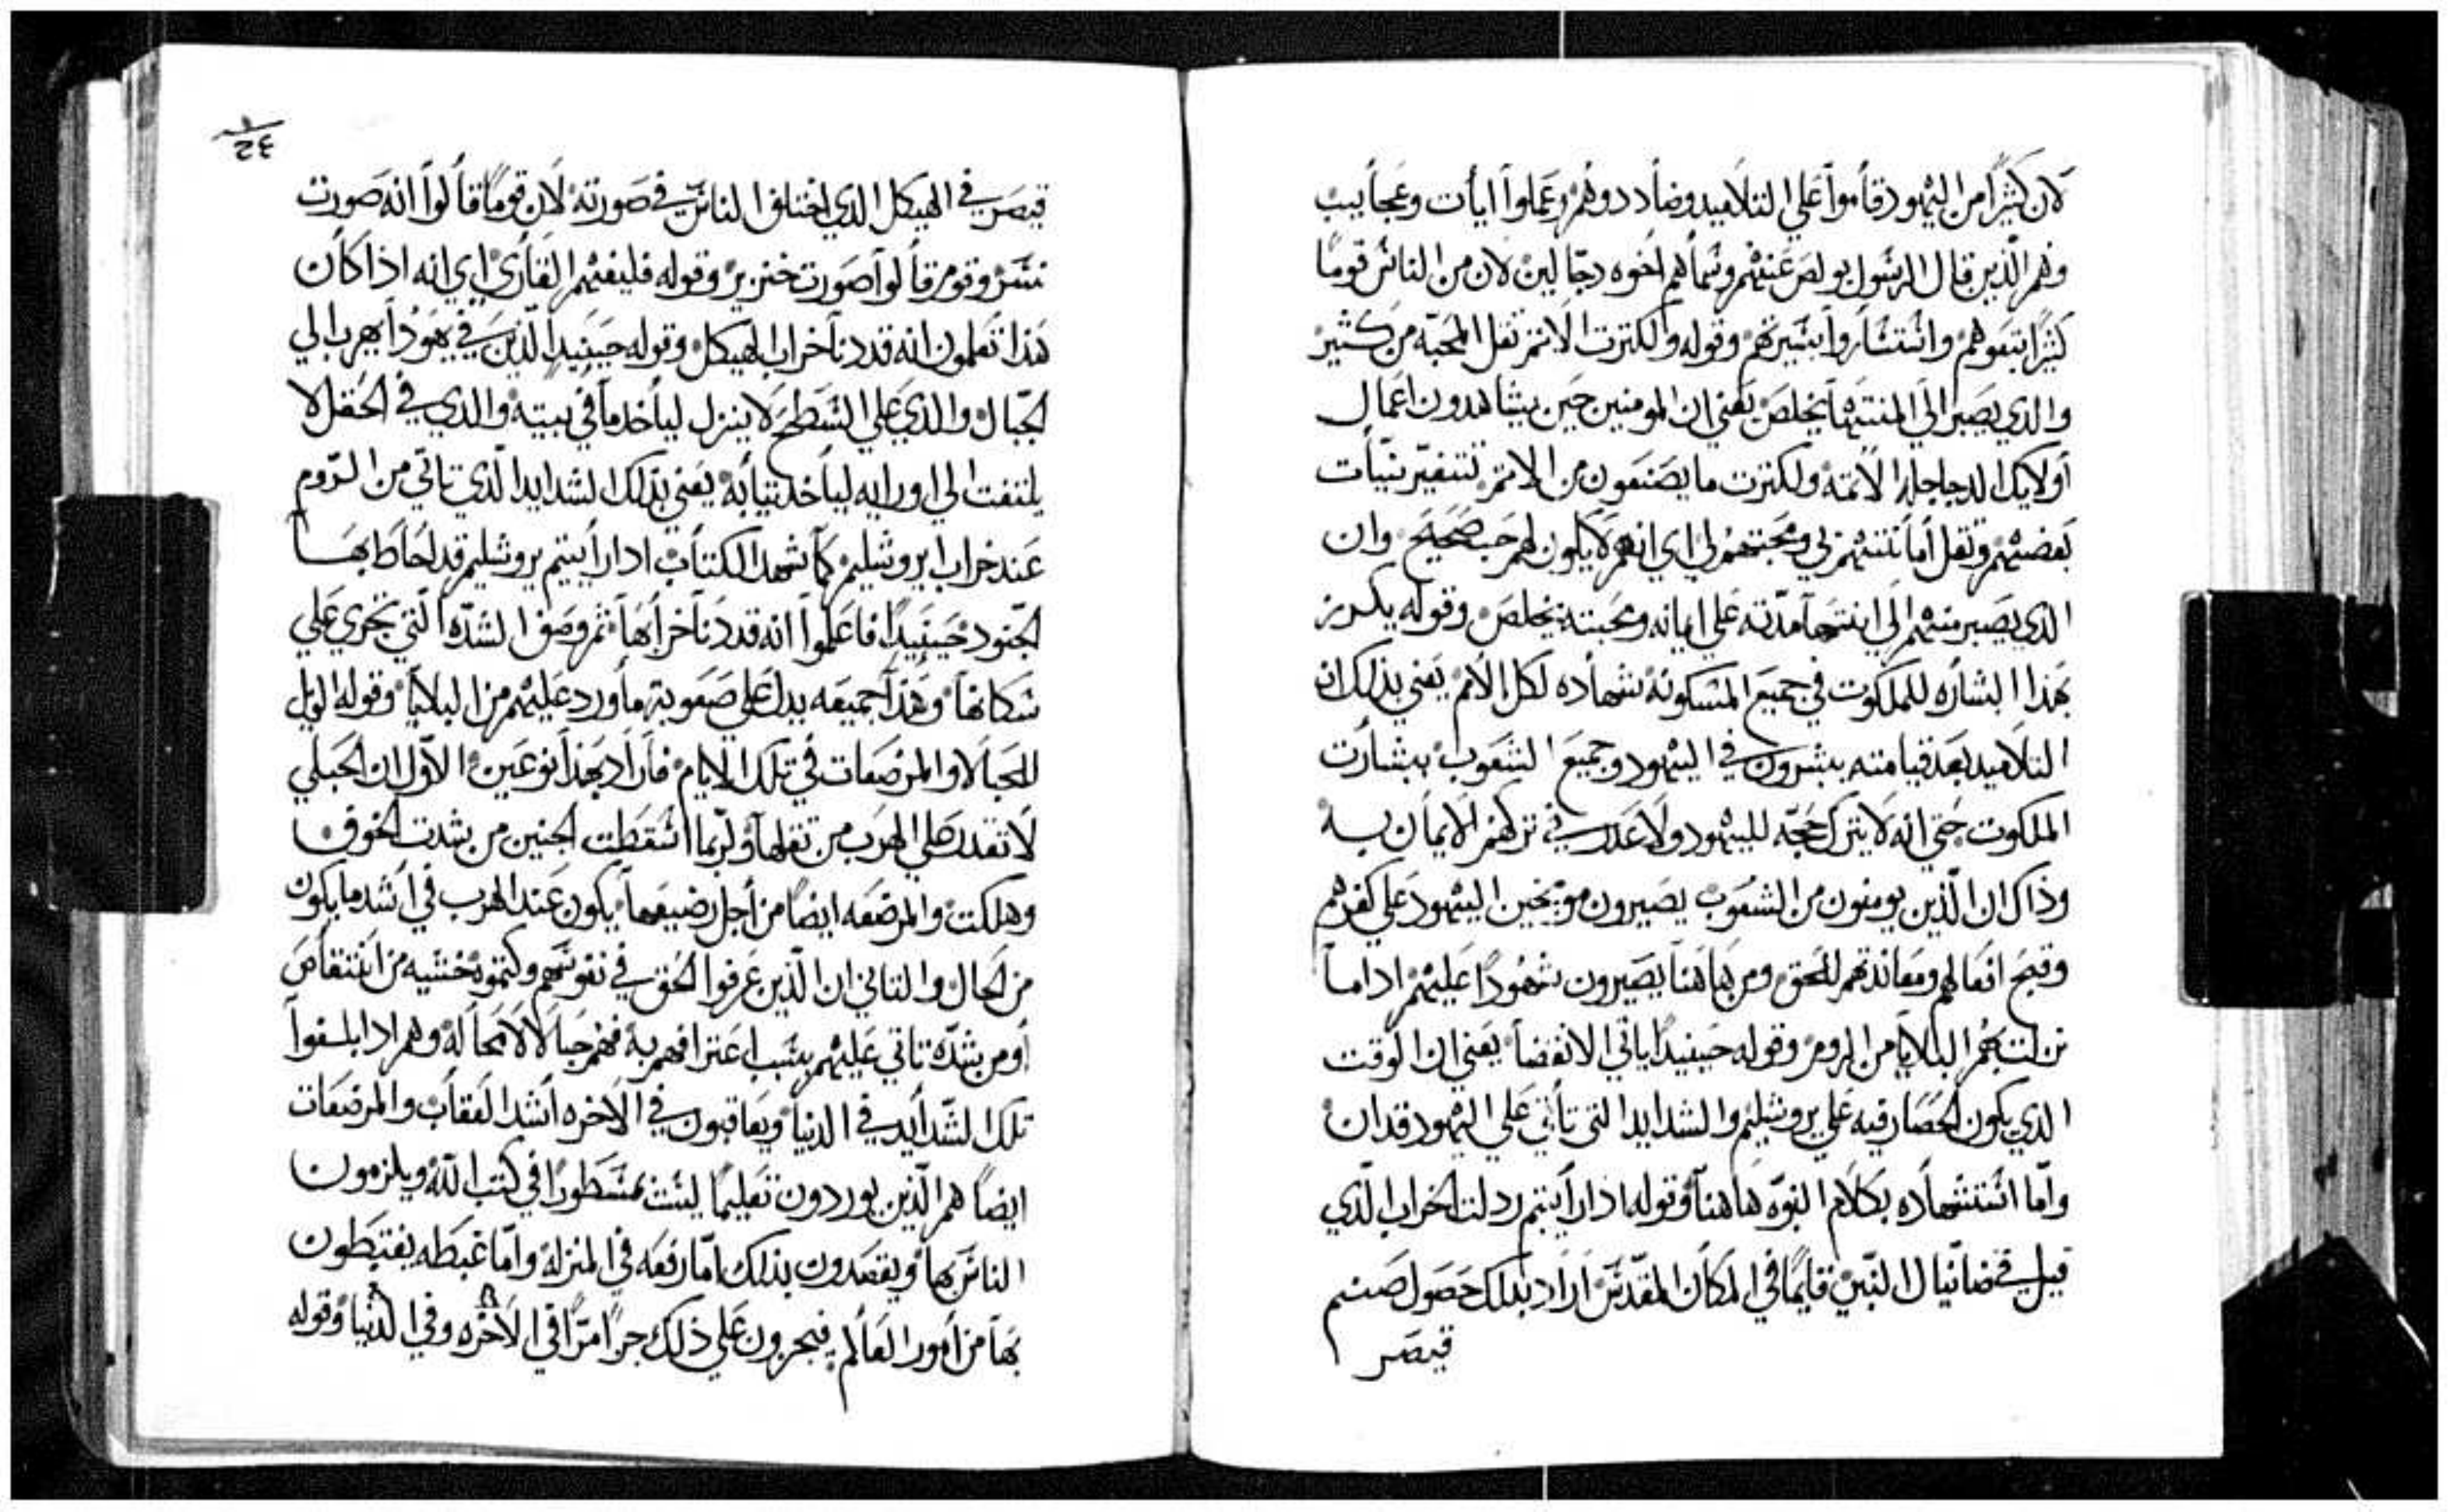 لان كثيرًا من اليهود قاموا علي التلاميد وضاددوهم وعملوا ايات وعجايب
وهم الّذين قال الرسول بولص عنهم وسماهم اخوه دجّالين لان من الناس قومًا
كثيرًا تبعوهم وانتشاروا بسيرتهم وقوله ولكترت الاتم تقل المحبّه من كثير
والدي يصبر الي المنتها يخلص يعني ان المومنين حين يشاهدون اعمال
اولايك الدجاجله الاتمه ولكترت ما يصنعون من الاتم تتغيّر نيّات
بعضهم وتقل امانتهم بي ومحبتهم لي اي انهم لا يكون لهم حب صحيح وان
الدي يصبر منهم الي انتها مدّته علي ايمانه ومحبته يخلص وقوله يكرز
بهذا البشاره للملكوت في جميع المسكونه شهاده لكل الامم يعني بذلك ان
التلاميد بعد قيامته يبشرون في اليهود وجميع الشعوب ببشارت
الملكوت حتي انه لا يترك حجّه لليهود ولا عدر في تركهم الايمان به
وذاك ان الّذين يومنون من الشعوب يصيرون موبّخين اليهود علي كفرهم
وقبح افعالهم ومعاندتهم للحق ومن هاهنا يصيرون شهودًا عليهم اداما
نزلت بهم البلايا من الروم وقوله حينيدًا ياتي الانقضا يعني ان الوقت
الدي يكون الحصار فيه علي يروشليم والشدايد التي تاتي علي اليهود قدان
وامّا استشهاده بكلام النبوّه هاهنا وقوله اذا رايتم ردلت الخراب الّدي
قيل في ضانيال النبي قايمًا في المكان المقدّس اراد بدلك حصول صنم
قيصر
قيصر في الهيكل الدي اختلف الناس في صورته لان قومًا قالوا انه صورت
نسر وقوم قالوا صورت خنزير وقوله فليفهم القاري اي انه اذا كان
هذا تعلمون انه قد دنا خراب الهيكل وقوله حينيدٍ الّذين في يهودا يهرب الي
الجبال والذي علي السطح لا ينزل لياخد ما في بيته والذي في الحقل لا
يلتفت الي اورايه لياخد تيابه يعني بذلك الشدايد الّدي تاتي من الروم
عند خراب يروشليم كما شهد الكتاب ادا رايتم يروشليم قد احاط بها
الجنود حينيدًا فاعلموا انه قد دنا خرابها ثم وصف الشدّه الّتي تجري علي
سكانها وهذا جميعه يدل علي صعوبة ما ورد عليهم من البلايا وقوله الويل
للحبالا والمرضعات في تلك الايام فاراد بهذا نوعين الاوّل ان الحبلي
لا تقدر علي الهرب من تقلها ولربّما اسقطت الجنين من شدت الخوف
وهلكت والمرضعه ايضًا من اجل رضيعها يكون عند الهرب في اشد ما يكون
من الحال والتاني ان الّذين عرفوا الحق في نفوسهم وكتموه خشيه من انتقاص
اومن شدّه تاتي عليهم بسبب اعترافهم به فهم حبالا لا محاله وهم ادا بلفوا
تلك الشّدايد في الدنيا ويعاقبون في الاخره اشد العقاب والمرضعات
ايضاً هم الّذين يوردون تعليمًا ليست بمسطورًا في كتب اللّه ويلزمون
الناس بها ويقصدون بذلك امّا رفعه في المنزله وامّا غبطه يغتبطون
بها من امور العالم فيجرون علي ذلك جرًا مرًّا في الاخره وفي الدنيا وقوله